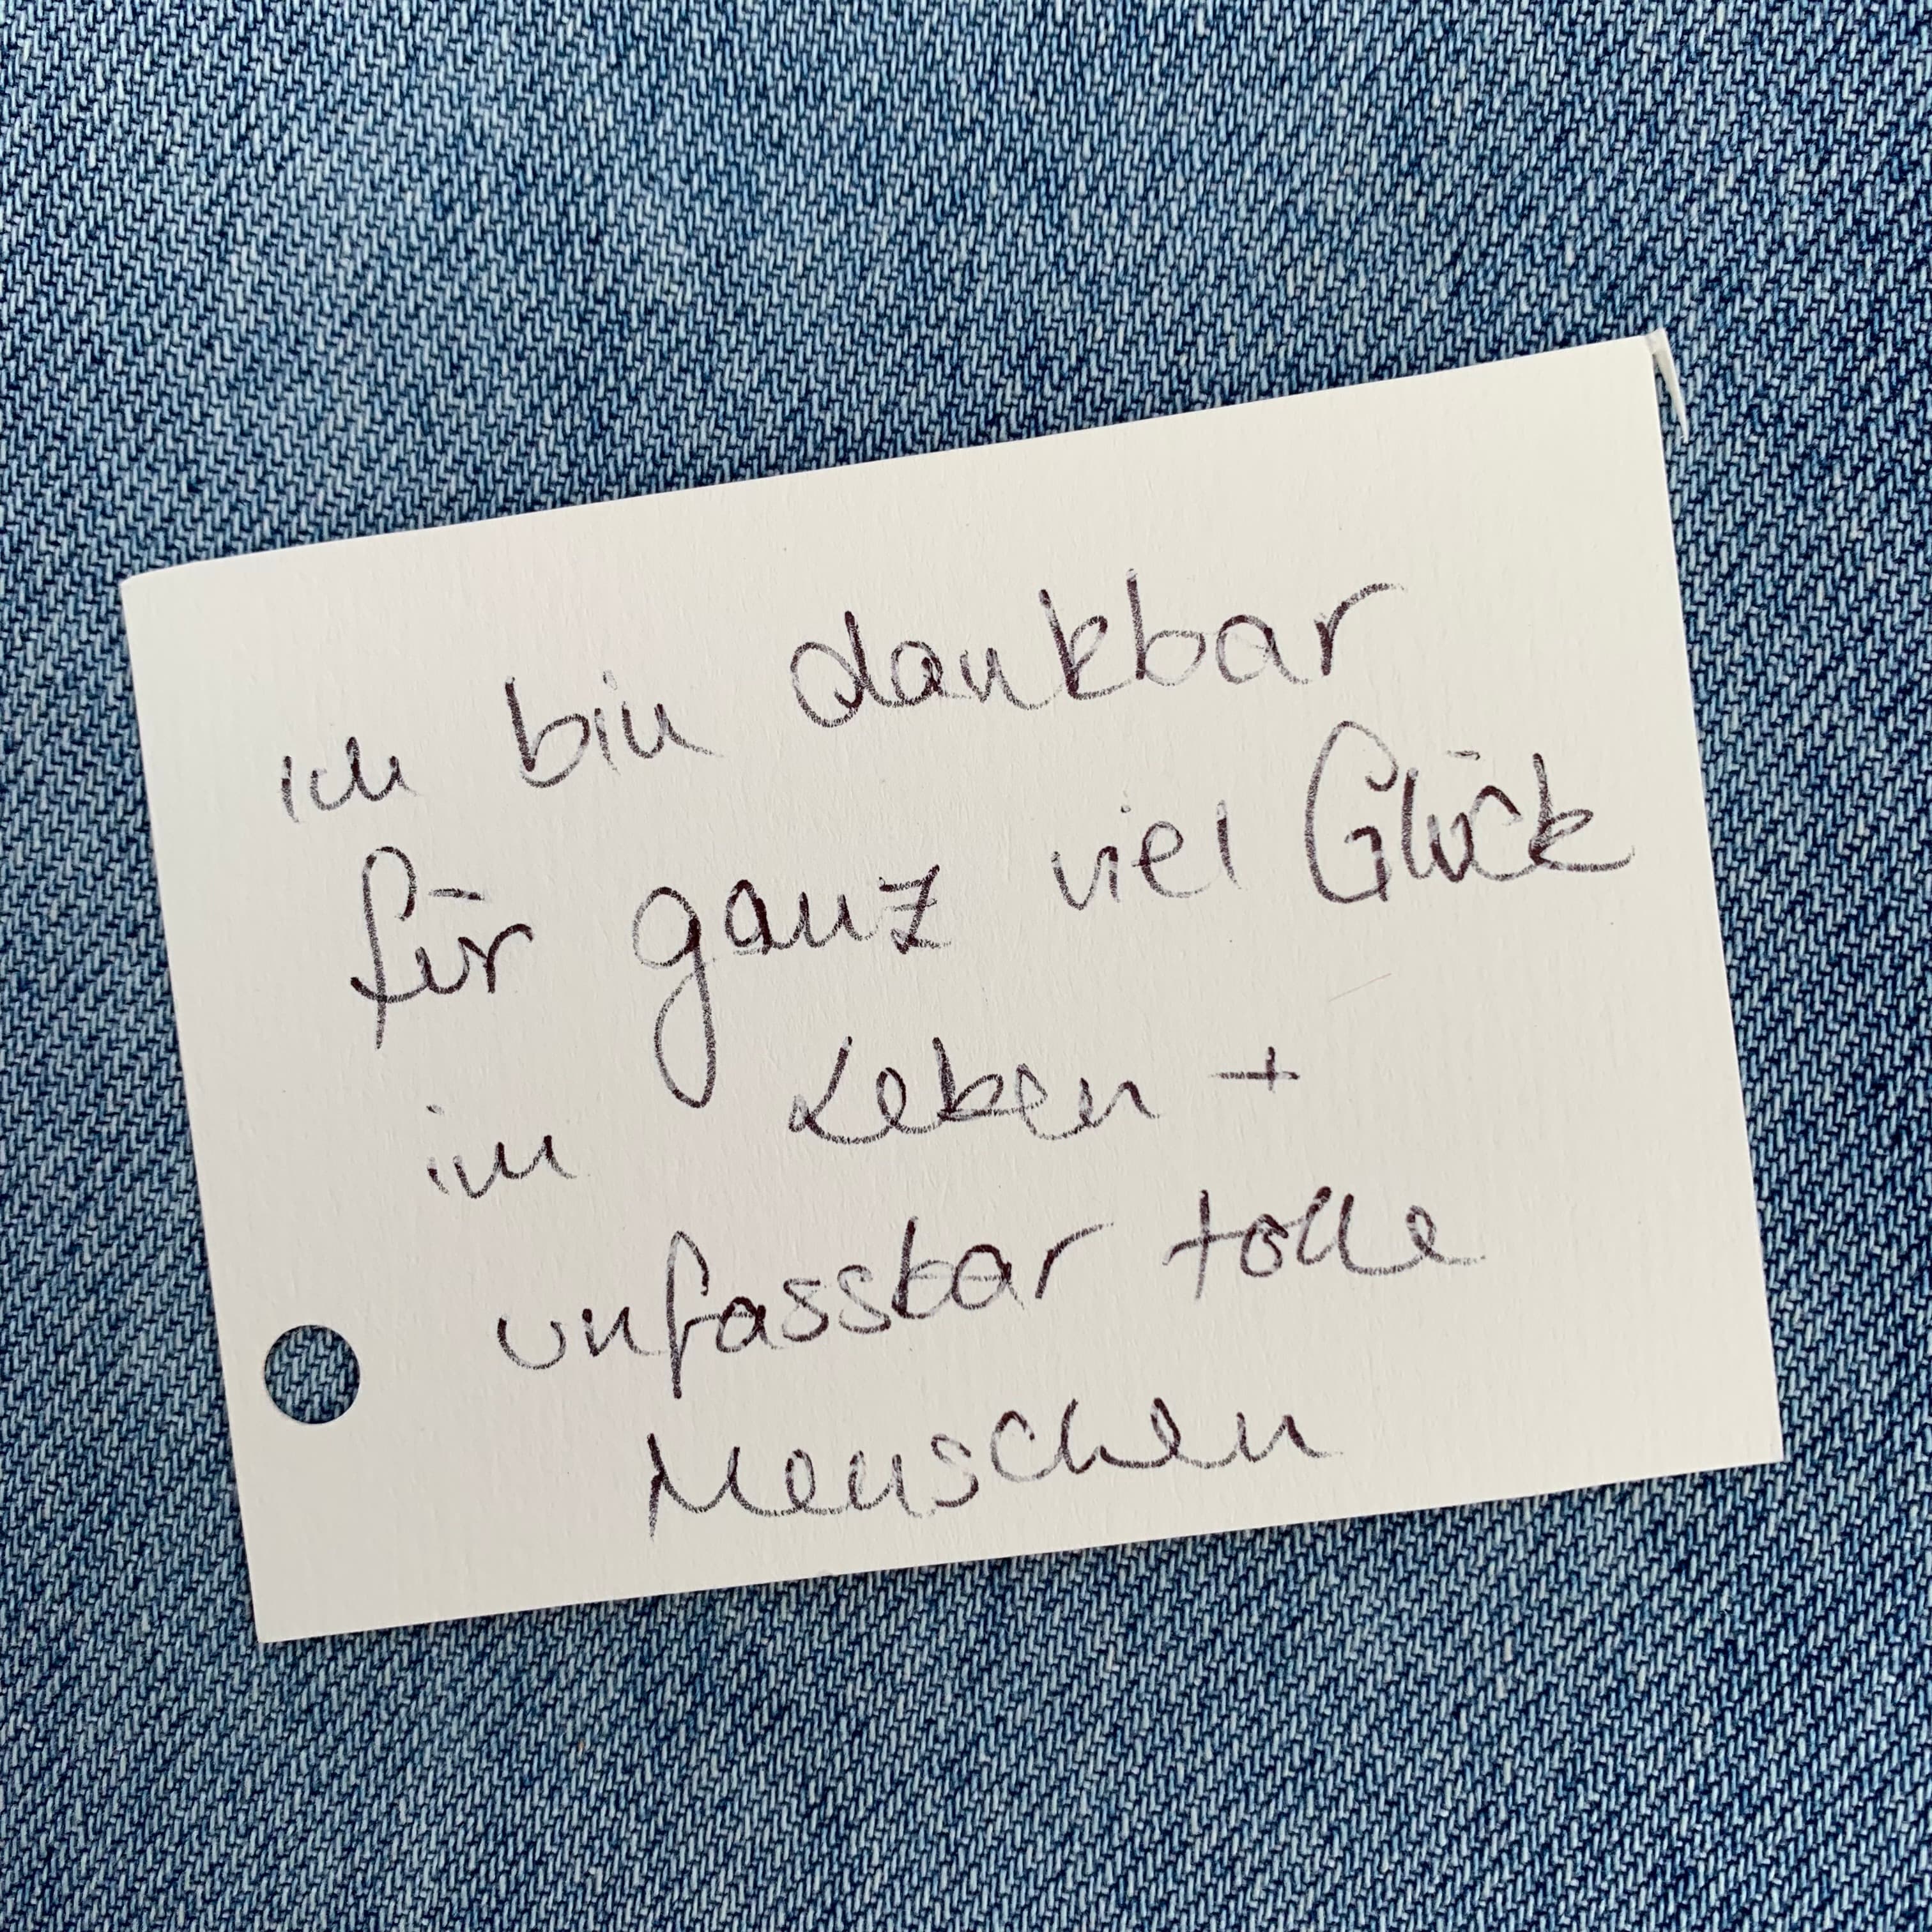 ich bin dankbar
für ganz viel Glück
im Leben +
unfassbar tolle
Menschen